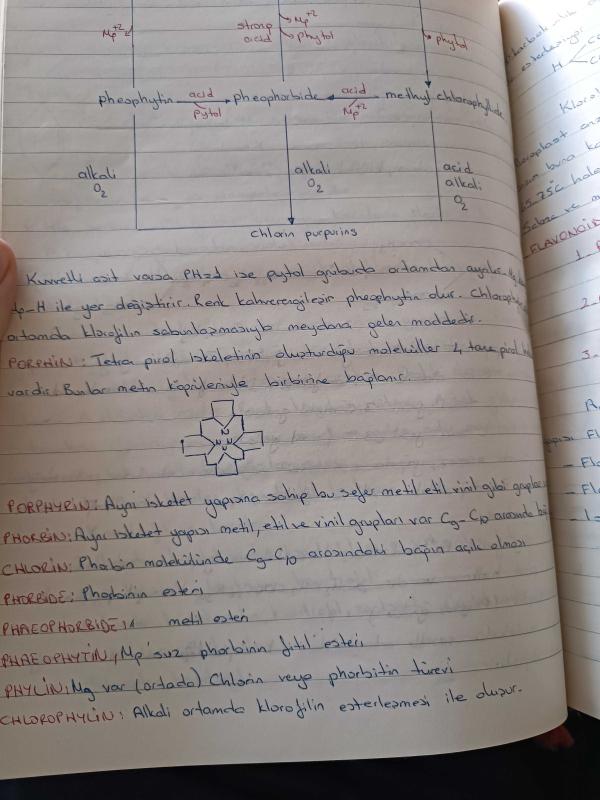 Mg+2
strong
acid
Mg+2
phytol
phytol
pheophytin acid pytol pheophorbide acid Mg+2 methyl chlorophyllide
alkali
O2
alkali
O2
acid
alkali
O2
Chlorin purpurins
Kuvvetli asit varsa PH=d ise pytol grubuda ortamdan ayrılır. Mg
-H ile yer değiştirir. Renk kahverengileşir pheophytin olur. Chlorophy
ortamda klorofilin sabunlaşmasıyla meydana gelen maddedir.
PORPHİN: Tetra pirol iskeletinin oluşturduğu moleküller 4 tane pirol
vardır. Bunlar metin köprüleriyle birbirine bağlanır.
N
N N
N
PORPHYRİN: Aynı iskelet yapısına sahip bu sefer metil etil vinil gibi gruplar
PHORBİN: Aynı iskelet yapısı metil, etil ve vinil grupları var C9-C10 arasında
CHLORİN: Phorbin molekülünde C9-C10 arasındaki bağın açık olması
PHORBİDE: Phorbinin esteri
PHAEOPHORBİDE: " metil esteri
PHAEOPHYTİN, Mg'suz phorbinin fitil esteri
PHYLİN: Mg var (ortada) Chlorin veya phorbitin türevi
CHLOROPHYLİN: Alkali ortamda klorofilin esterleşmesi ile oluşur.
H
Klorof
FLAVONOİD
1.
2.
3.
- Fla
- Fl